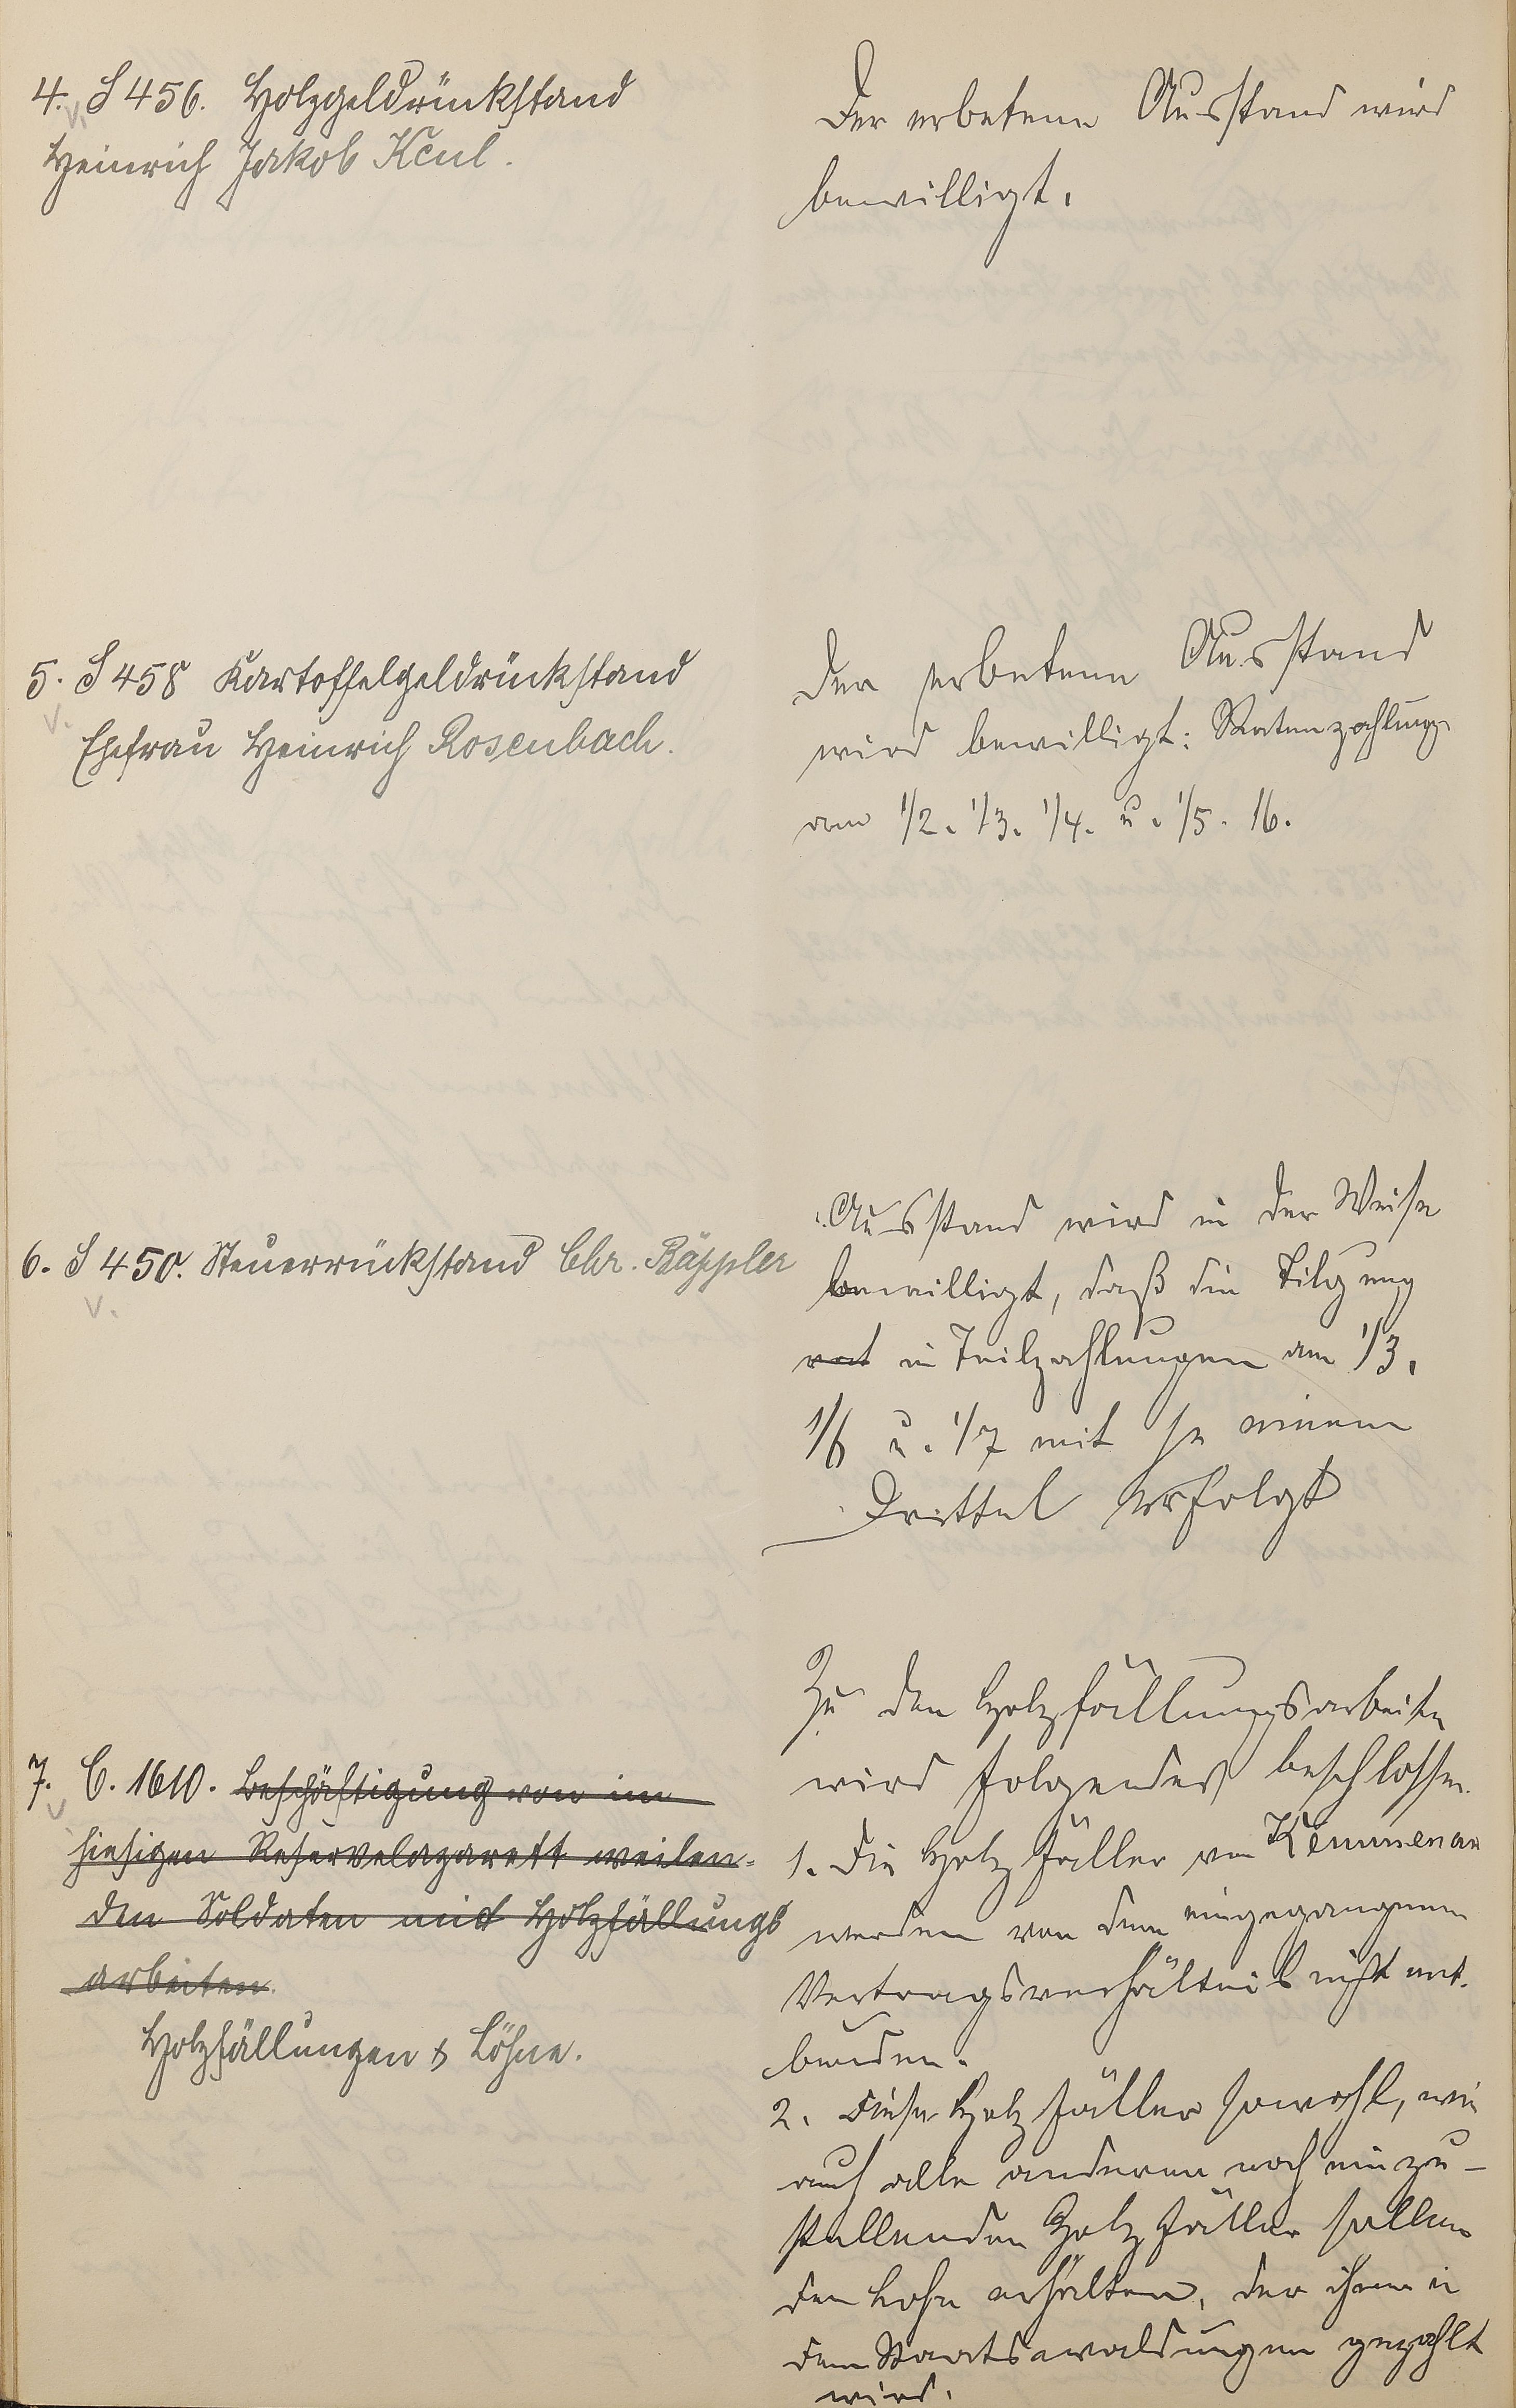 4. S 456. Holzgeldrückstand
Heinrich Jakob Keul.
Der erbetene Ausstand wird
bewilligt.
5. S 458 Kartoffelgeldrückstand
Ehefrau Heinrich Rosenbach.
Der erbetene Ausstand
wird bewilligt: Ratenzahlung
am 1/2. 1/3. 1/4. u. 1/5. 16.
6. S 450. Steuerrückstand Chr. Bäppler
Ausstand wird in der Weise
bewilligt, daß die Tilgung
in Teilzahlungen am 1/3.
1/6 u. 1/7 mit je einem
Drittel erfolgt
7. C. 1610. Beschäftigung von im
hiesigen Reservelazarett weilen-
den Soldaten mit Holzfällungs
arbeiten.
Holzfällungen & Löhne.
Zu den Holzfällungsarbeiten
wird folgendes beschlossen.
1. Die Holzfäller von Kemmenau
werden von dem eingegangenen
Vertragsverhältnis nicht ent-
bunden.
2. Diese Holzfäller sowohl, wie
auch alle anderen noch einzu-
stellenden Holzfäller sollen
den Lohn erhalten, der ihnen in
den Staatswaldungen gezahlt
wird.